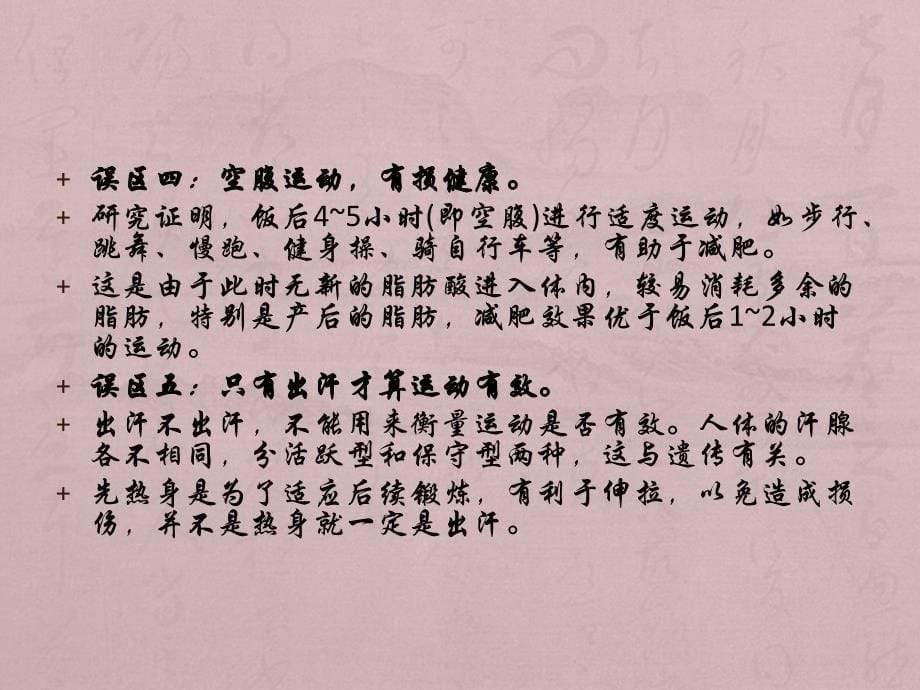 误区四：空腹运动，有损健康。
研究证明，饭后4~5小时(即空腹)进行适度运动，如步行、
跳舞、慢跑、健身操、骑自行车等，有助于减肥。
这是由于此时无新的脂肪酸进入体内，较易消耗多余的
脂肪，特别是产后的脂肪，减肥效果优于饭后1~2小时
的运动。
误区五：只有出汗才算运动有效。
出汗不出汗，不能用来衡量运动是否有效。人体的汗腺
各不相同，分活跃型和保守型两种，这与遗传有关。
先热身是为了适应后续锻炼，有利于伸拉，以免造成损
伤，并不是热身就一定是出汗。